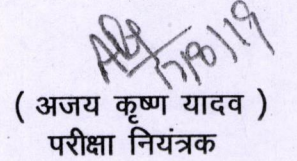 17/8/19
( अजय कृष्ण यादव )
परीक्षा नियंत्रक